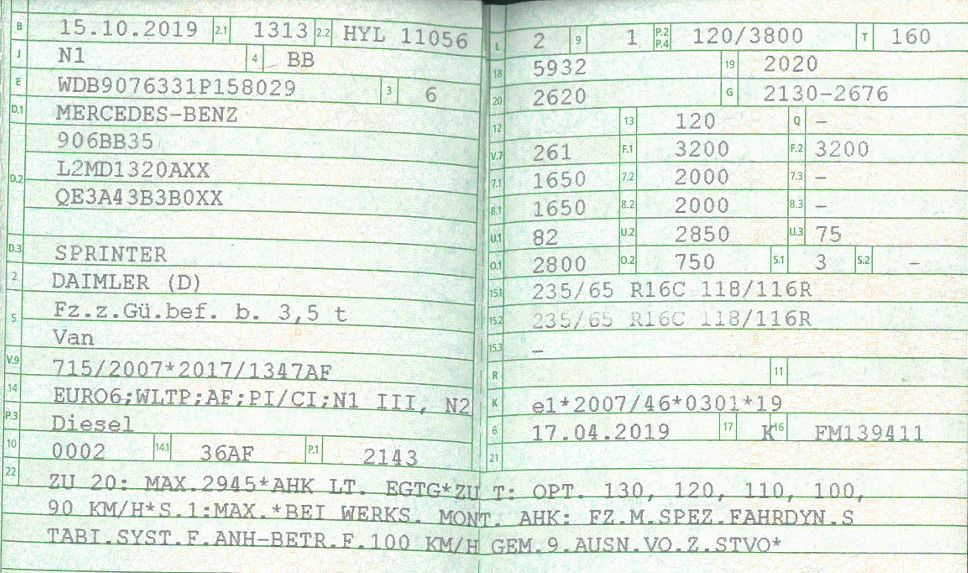 B 15.10.2019 2.1 1313 2.2 HYL 11056
J N1 4 BB
E WDB9076331P158029 3 6
D.1 MERCEDES-BENZ
906BB35
D.2 L2MD1320AXX
QE3A43B3B0XX
D.3 SPRINTER
2 DAIMLER (D)
5 Fz.z.Gü.bef. b. 3,5 t
Van
V.9 715/2007*2017/1347AF
14 EURO6;WLTP;AF;PI/CI;N1 III, N2
P.3 Diesel
10 0002 14.1 36AF P.1 2143
L 2 9 1 P.2 P.4 120/3800 T 160
18 5932 19 2020
20 2620 G 2130-2676
12 13 120 Q –
V.7 261 F.1 3200 F.2 3200
7.1 1650 7.2 2000 7.3 –
8.1 1650 8.2 2000 8.3 –
U.1 82 U.2 2850 U.3 75
O.1 2800 O.2 750 S.1 3 S.2 –
15.1 235/65 R16C 118/116R
15.2 235/65 R16C 118/116R
15.3 –
R 11
K e1*2007/46*0301*19
6 17.04.2019 17 K 16 FM139411
21
22 ZU 20: MAX.2945*AHK LT. EGTG*ZU T: OPT. 130, 120, 110, 100,
90 KM/H*S.1:MAX.*BEI WERKS. MONT. AHK: FZ.M.SPEZ.FAHRDYN.S
TABI.SYST.F.ANH-BETR.F.100 KM/H GEM.9.AUSN.VO.Z.STVO*